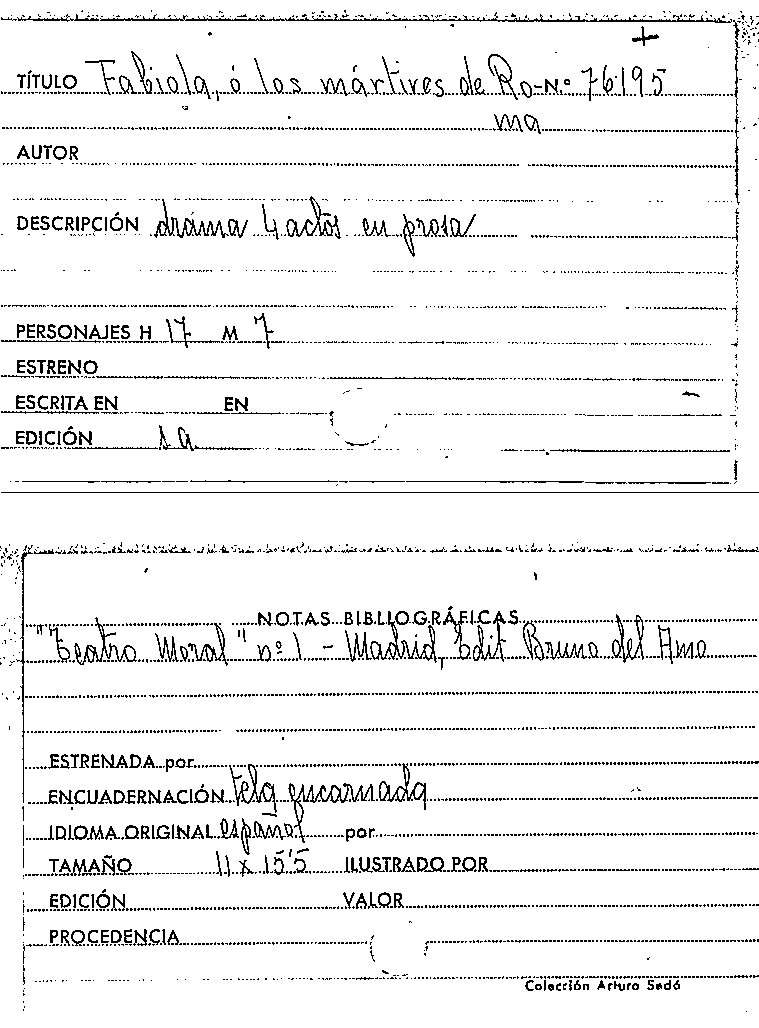 +
TÍTULO Fabiola, ó los mártires de Ro- N.º 76195
ma
AUTOR
DESCRIPCIÓN dráma 4 actos en prosa
PERSONAJES H 17 M 7
ESTRENO
ESCRITA EN EN
EDICIÓN 1a
NOTAS BIBLIOGRÁFICAS
"Teatro Moral" nº 1 - Madrid, Edit Bruno del Amo
ESTRENADA por
ENCUADERNACIÓN tela encarnada
IDIOMA ORIGINAL español por
TAMAÑO 11 x 15'5 ILUSTRADO POR
EDICIÓN VALOR
PROCEDENCIA
Colección Arturo Sedó